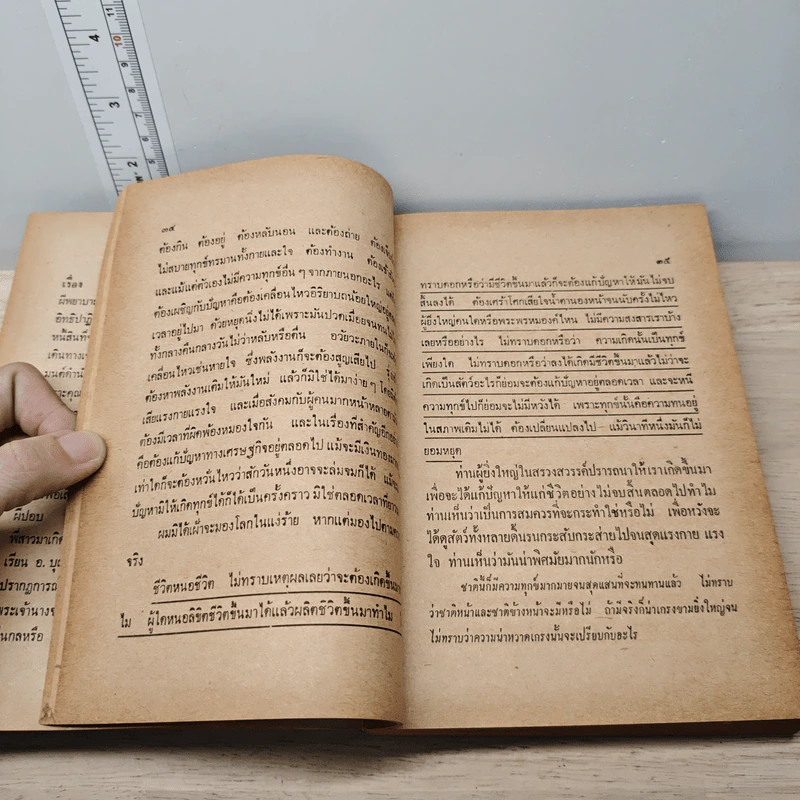 เรื่อง
ผีพยาบาท
อิทธิปาฏิ
หนี้สินท
เดินทางเ
มนต์ดำน
ราะคุณ
ผีปอบ
พี่สาวมาเ
เรียน อ. บุ
ปรากฏการณ
พระเจ้านาง
นกลหรือ
๓๔
ต้องกิน ต้องอยู่ ต้องหลับนอน และต้องถ่าย
ไม่สบายทุกข์ทรมานทั้งกายและใจ ต้องทำงาน
และแม้แต่ตัวเองไม่มีความทุกข์อื่นๆ จากภายนอกอะไร
ต้องเผชิญกับปัญหาคือต้องเคลื่อนไหวอิริยาบถน้อยใหญ่อยู่
เวลาอยู่ไปมา ด้วยหยุดนิ่งไม่ได้เพราะมันปวดเมื่อยจนทนไม่
ทั้งกลางคืนกลางวันไม่ว่าหลับหรือตื่น อวัยวะภายในก็
เคลื่อนไหวเช่นหายใจ ซึ่งพลังงานก็จะต้องสูญเสียไป
ต้องหาพลังงานเติมให้มันใหม่ แล้วก็มิใช่ได้มาง่ายๆ
เสียแรงกายแรงใจ และเมื่อสังคมกับผู้คนมากหน้าหลาย
ต้องมีเวลาที่ผิดพ้องหมองใจกัน และในเรื่องที่สำคัญอีก
คือต้องแก้ปัญหาทางเศรษฐกิจอยู่ตลอดไป แม้จะมีเงินทอง
เท่าใดก็จะต้องหวั่นไหวว่าสักวันหนึ่งอาจจะล่มจมก็ได้
ปัญหามิให้เกิดทุกข์ได้ก็ได้เป็นครั้งคราว มิใช่ตลอดเวลา
ผมมิได้เผ้าจะมองโลกในแง่ร้าย หากแต่มองไปตาม
จริง
ชีวิตหนอชีวิต ไม่ทราบเหตุผลเลยว่าจะต้องเกิดขึ้นมา
ไม ผู้ใดหนอลิขิตชีวิตขึ้นมาได้แล้วผลิตชีวิตขึ้นมาทำไม
๓๕
ทราบดอกหรือว่ามีชีวิตขึ้นมาแล้วก็จะต้องแก้ปัญหาให้มันไม่จบ
สิ้นลงได้ ต้องเศร้าโศกเสียใจน้ำตานองหน้าจนนับครั้งไม่ไหว
ผู้ยิ่งใหญ่คนใดหรือพระพรหมองค์ไหน ไม่มีความสงสารเราบ้าง
เลยหรืออย่างไร ไม่ทราบดอกหรือว่า ความเกิดนั้นเป็นทุกข์
เพียงใด ไม่ทราบดอกหรือว่าลงได้เกิดมีชีวิตขึ้นมาแล้วไม่ว่าจะ
เกิดเป็นสัตว์อะไรก็ย่อมจะต้องแก้ปัญหาอยู่ตลอดเวลา และจะหนี
ความทุกข์ไปก็ย่อมจะไม่มีหวังได้ เพราะทุกข์นั้นคือความทนอยู่
ในสภาพเดิมไม่ได้ ต้องเปลี่ยนแปลงไป แม้วินาทีหนึ่งมันก็ไม่
ยอมหยุด
ท่านผู้ยิ่งใหญ่ในสรวงสวรรค์ปรารถนาให้เราเกิดขึ้นมา
เพื่อจะได้แก้ปัญหาให้แก่ชีวิตอย่างไม่จบสิ้นตลอดไปทำไม
ท่านเห็นว่าเป็นการสมควรที่จะกระทำใช่หรือไม่ เพื่อหวังจะ
ได้ดูสัตว์ทั้งหลายดิ้นรนกระสับกระส่ายไปจนสุดแรงกาย แรง
ใจ ท่านเห็นว่ามันน่าพิศมัยมากนักหรือ
ชาตินี้ก็มีความทุกข์มากมายจนสุดแสนที่จะทนทานแล้ว ไม่ทราบ
ว่าชาติหน้าและชาติข้างหน้าจะมีหรือไม่ ถ้ามีจริงก็น่าเกรงขามยิ่งใหญ่จน
ไม่ทราบว่าความน่าหวาดเกรงนั้นจะเปรียบกับอะไร